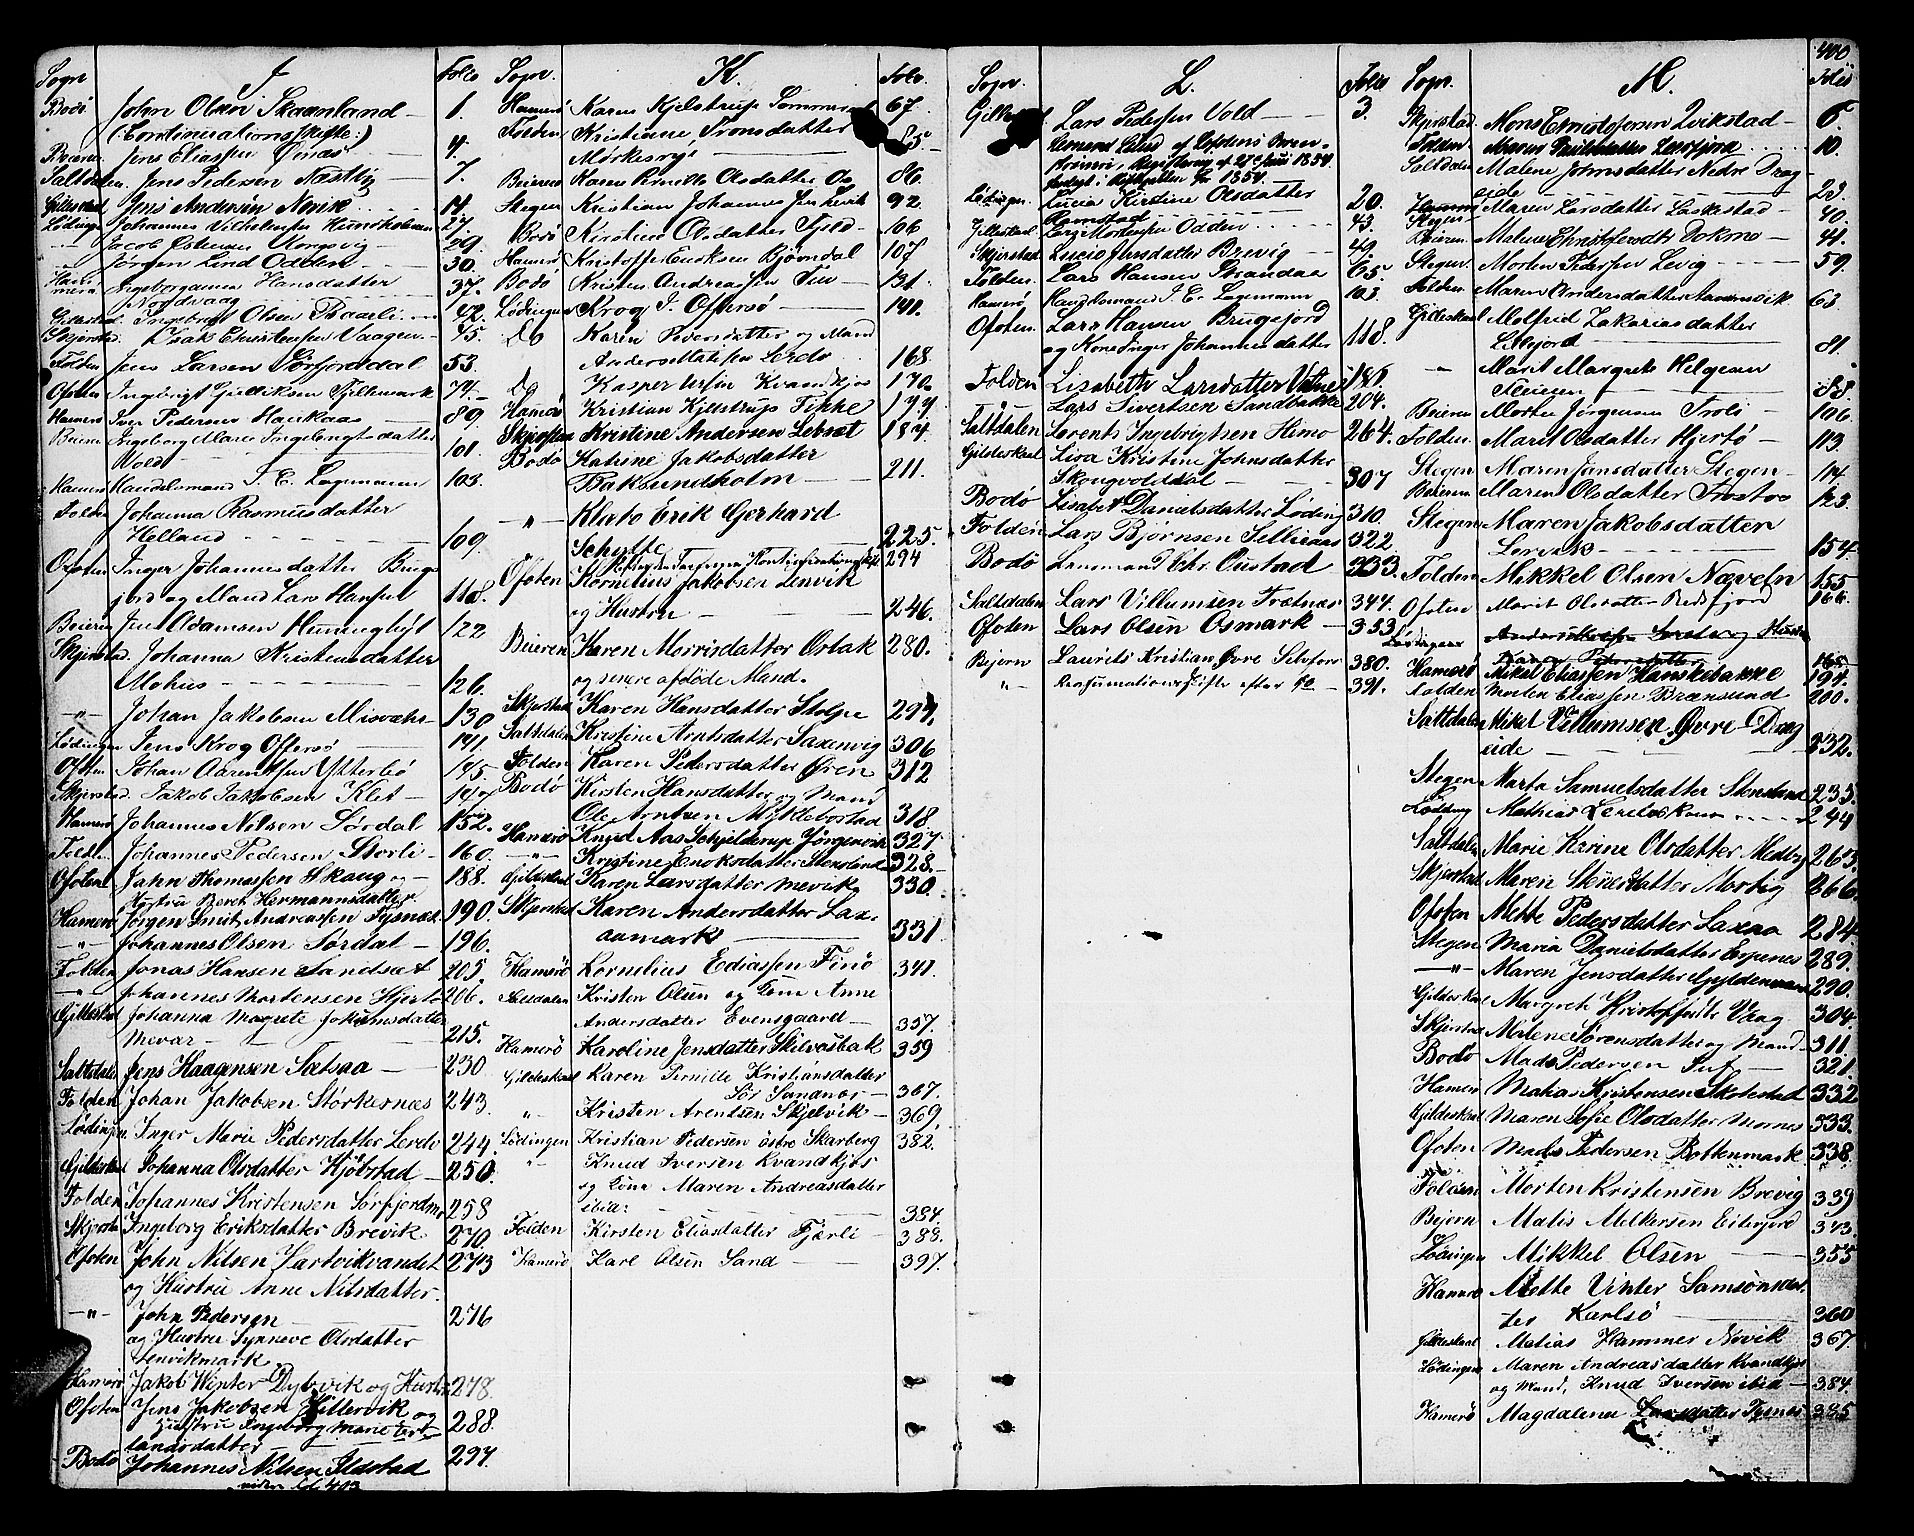 400
Sogn J. Folio
Bodö John Olsen Skaanland 1.
(Continuationsskifte:)
Beieren Jens Eliassen Osnæs 4.
Saltdalen Jens Pedersen Næstby 7.
Gilleskaal Jens Andersen Nevik 14.
Lödingen Johannes Vilhelmsen Hundholmen 27.
Jacob Estensen Vongsvig 29.
Jörgen Lind Odden 30.
Hammerö Ingeborganna Hansdatter
Nordvaag 37.
Gilleskaal Ingebrigt Olsen Paarli 42.
Skjerstad Isak Christensen Vaagen 45.
Folden Jens Larsen Sörfjorddal 53.
Ofoten Ingebrigt Gulliksen Fjellemark 74.
Hamerö Iver Pedersen Haukaas 89.
Beieren Ingeborg Maria Ingebrigtsdatter
Wold 101.
Hamerö Handelsmand I. E. Lagemann 103.
Folden Johanna Rasmusdatter
Helland 109.
Ofoten Inger Johannesdatter Bruge
jord og Mand Lars Hansen 118.
Beieren Jens Adamsen Hunnighöjt 122
Skjerstad Johanna Kristensdatter
Mohus 126.
-"- Johan Jakobsen Misvæhr 130
Lödingen Jens Krog Offersö 141.
Ofoten Johan Aarentsen Ytterbö 145.
Skjerstad Jakob Jakobsen Klet 147
Hamerö Johannes Nilsen Sördal 152.
Folden Johannes Pedersen Storli 160.
Ofoten John Thomassen Skaug og
Hustru Berit Hermannsdatter 188.
Hamerö Jörgen Smit Andreassen Tysnæs 190.
-"- Johannes Olsen Sördal 196.
Folden Jonas Hansen Sandsæt 205.
-"- Johannes Mortensen Hjertö 206.
Gilleskaal Johanna Magrete Joakimsdatter
Mevær 215.
Saltdalen Jens Haagensen Sætsaa 230
Folden Johan Jakobsen Störkersnæs 243.
Lödingen Inger Marie Pedersdatter Lerdo 244.
Gilleskaal Johanna Olsdatter Kjöbstad 250.
Folden Johannes Kristensen Sörfjordmo 258
Skjerstad Ingeborg Eriksdatter Brevik 270.
Ofoten John Nilsen Lartvikvandet 273
og Hustru Anne Nilsdatter.
-"- John Pedersen 276
og Hustru Synneve Olsdatter
Lenvikmark
Hamerö Jakob Winter Dybvik og Hustru 278.
Ofoten Jens Jakobsen Hillervik og 288.
Hustru Ingeborg Marie Erl-
landsdatter
Bodö Johannes Nilsen Ildstad 294.
Sogn. K. Folio.
Hamerö Karen Kjelstrup Sommer 67.
Folden Kristiane Tronsdatter
Mörkesvig 85
Beieren Karen Pernille Olsdatter Os 86
Stegen Kristian Johannes Jensen Leivik 92.
Bodö Kirstine Olsdatter Fjeld 106
Hamerö Kristoffer Enoksen Bjørndal 107
Bodö Kristen Andreassen Fiu 131.
Lödingen Krog J. Offersö 141.
Do Karen Pedersdatter og Mand
Anders Matisen Lerdo 168
Do Kasper Ursin Kvandkjos 170.
Hamerö Kristian Kjelstrup Fikke 177.
Skjerstad Kristine Andersen Lebsæt 184.
Bodö Katrine Jakobsdatter
Baksundholm 211.
-"- Klato Erik Gerhard
Schytte 225.
294
Ofoten Kornelius Jakobsen Lenvik
og Hustru 246.
Beieren Karen Morrisdatter Ostak 280.
og senere afdöde Mand.
Skjerstad Karen Hansdatter Stolpe 297.
Saltdalen Kristine Arntsdatter Saxenvig 306
Folden Karen Pedersdatter Ören 312
Bodö Kirsten Hansdatter og Mand
Ole Arntsen Myklebostad 318
Hamerö Knud Aas Schjelderup Jörgensen 327.
-"- Kristine Enoksdatter Stensland 328.
Gildeskaal Karen Larsdatter Mevik 330.
Skjerstad Karen Andersdatter Lax-
aamark 331
Hamerö Kornelius Ediassen Finö 341.
Saltdalen Kristen Olsen og Kone Anne
Andersdatter Evensgaard 357.
Hamerö Karoline Jensdatter Skilvasbak 359
Gildeskaal Karen Pernille Kristiansdatter
Sör Sandnes 367.
" Kristen Arentsen Skjelvik 369.
Lödingen Kristian Pedersen östre Skarberg 382.
" Knud Iversen Kvandkjos
og Kone Maren Andreasdatter
ibid: 384.
Folden Kirsten Eliasdatter Fjærli 388.
Hamerö Karl Olsen Sand 397.
Sogn. L. Folio
Gilleskaal Lars Pedersen Vold 3.
Lödingen Lucia Kirstine Olsdatter
Ramstad 20.
Gilleskaal Lars Mortensen Odden 43.
Skjerstad Lucia Jensdatter Brevig 49.
Folden Lars Hansen Strandaa 65.
Hamerö Handelsmand I. E. Lagemann 103
Ofoten Lars Hansen Brugejord
og Kone Inger Johannesdatter 118.
Folden Lisabeth Larsdatter Vatne 181
Lars Sivertsen Sandbakke 204.
Saltdalen Lorents Ingebrigtsen Himo 264.
Gildeskaal Lisa Kristine Johnsdatter
Skougvolddal 307
Bodö Lisabet Danielsdatter Löding 310.
Folden Lars Björnsen Selliaas 322
Bodö Lensmand Chr. Oustad 333.
Saltdalen Lars Villumsen Trætnes 344.
Ofoten Lars Olsen Osmark 353
Bejern Laurits Kristian Övre Selsfors 380.
-"- 391.
Sogn. M. Folio
Skjerstad Mons Christofersen Kvikstad 6.
Folden Maren Paulsdatter Laxfjord 10.
Saltdalen Malene Johnsdatter Nedre Drag-
eide 23.
Stegen Maren Larsdatter Laskestad 40.
Beieren Malene Christofersdtr Tokmo 41.
Stegen Morten Pedersen Levig 59.
Folden Maren Andersdatter 63
Gildeskaal Molfrid Zakariasdatter
Setefjord 81.
" Marit Margrete Helgesen
Fleinen 88.
Beieren Morten Jörgensen Troli 106.
Folden Marit Olsdatter Hjertö 113.
Stegen Maren Jansdatter Stegen 114.
Beieren Maren Olsdatter Frostmo 123.
Stegen Maren Jakobsdatter
Lervik 154
Folden Mikkel Olsen Nævelsn 155
Ofoten Marit Olsdatter Bredsfjord 166.
Lödingen Anders Matisen Lerdo og Hustru
Karen Pedersdatter 168
Hamerö Mikal Eliassen Hanskebakke 194.
Folden Morten Eliassen Brændsund 200.
Saltdalen Mikel Villumsen Övre Drag
eide 232.
Stegen Marta Samuelsdatter Stensland 233.
Lödingen Mathias 244
Saltdalen Marie Karine Olsdatter Medby 263.
Skjerstad Maren Stenersdatter Morlig 266.
Ofoten Mette Pedersdatter Laxaa 284.
Stegen Maria Danielsdatter Erpenes 289.
-"- Maren Jensdatter Gyldenvand 290.
Gildeskaal Margrete Kristoffersdtr Vaag 304.
Skjerstad Malene Sörensdatter og Mand 311.
Bodö Mads Pedersen Suf 321.
Hamerö Matias Kristensen Skotestad 332
Gildeskaal Maren Sofie Olsdatter Mornes 333.
Ofoten Mads Pedersen Bottenmark 338.
Folden Morten Kristensen Brevig 339
Bejern Matis Melkersen Eiterjord 343.
Lödingen Mikkel Olsen 355
Hamerö Mette Vinter Samsönsdat-
ter Karlsö 360
Gildeskaal Matias Hammer Növik 367.
Lödingen Maren Andreasdatter Kvandkjos
og Mand, Knud Iversen ibid 384.
Hamerö Magdalena Larsdatter Tysnes 385